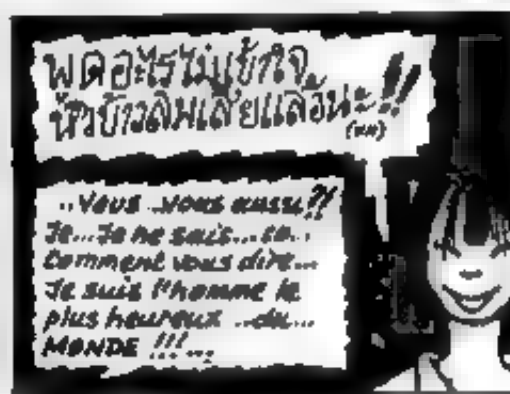 พูดอะไรไม่เข้าใจ
หิวข้าวลืมเสียแล้วน่ะ!!
(**)
..Vous ..vous aussi?!
Je...Je ne sais...
Comment vous dire...
Je suis l'homme le
plus heureux ..du...
MONDE !!!...